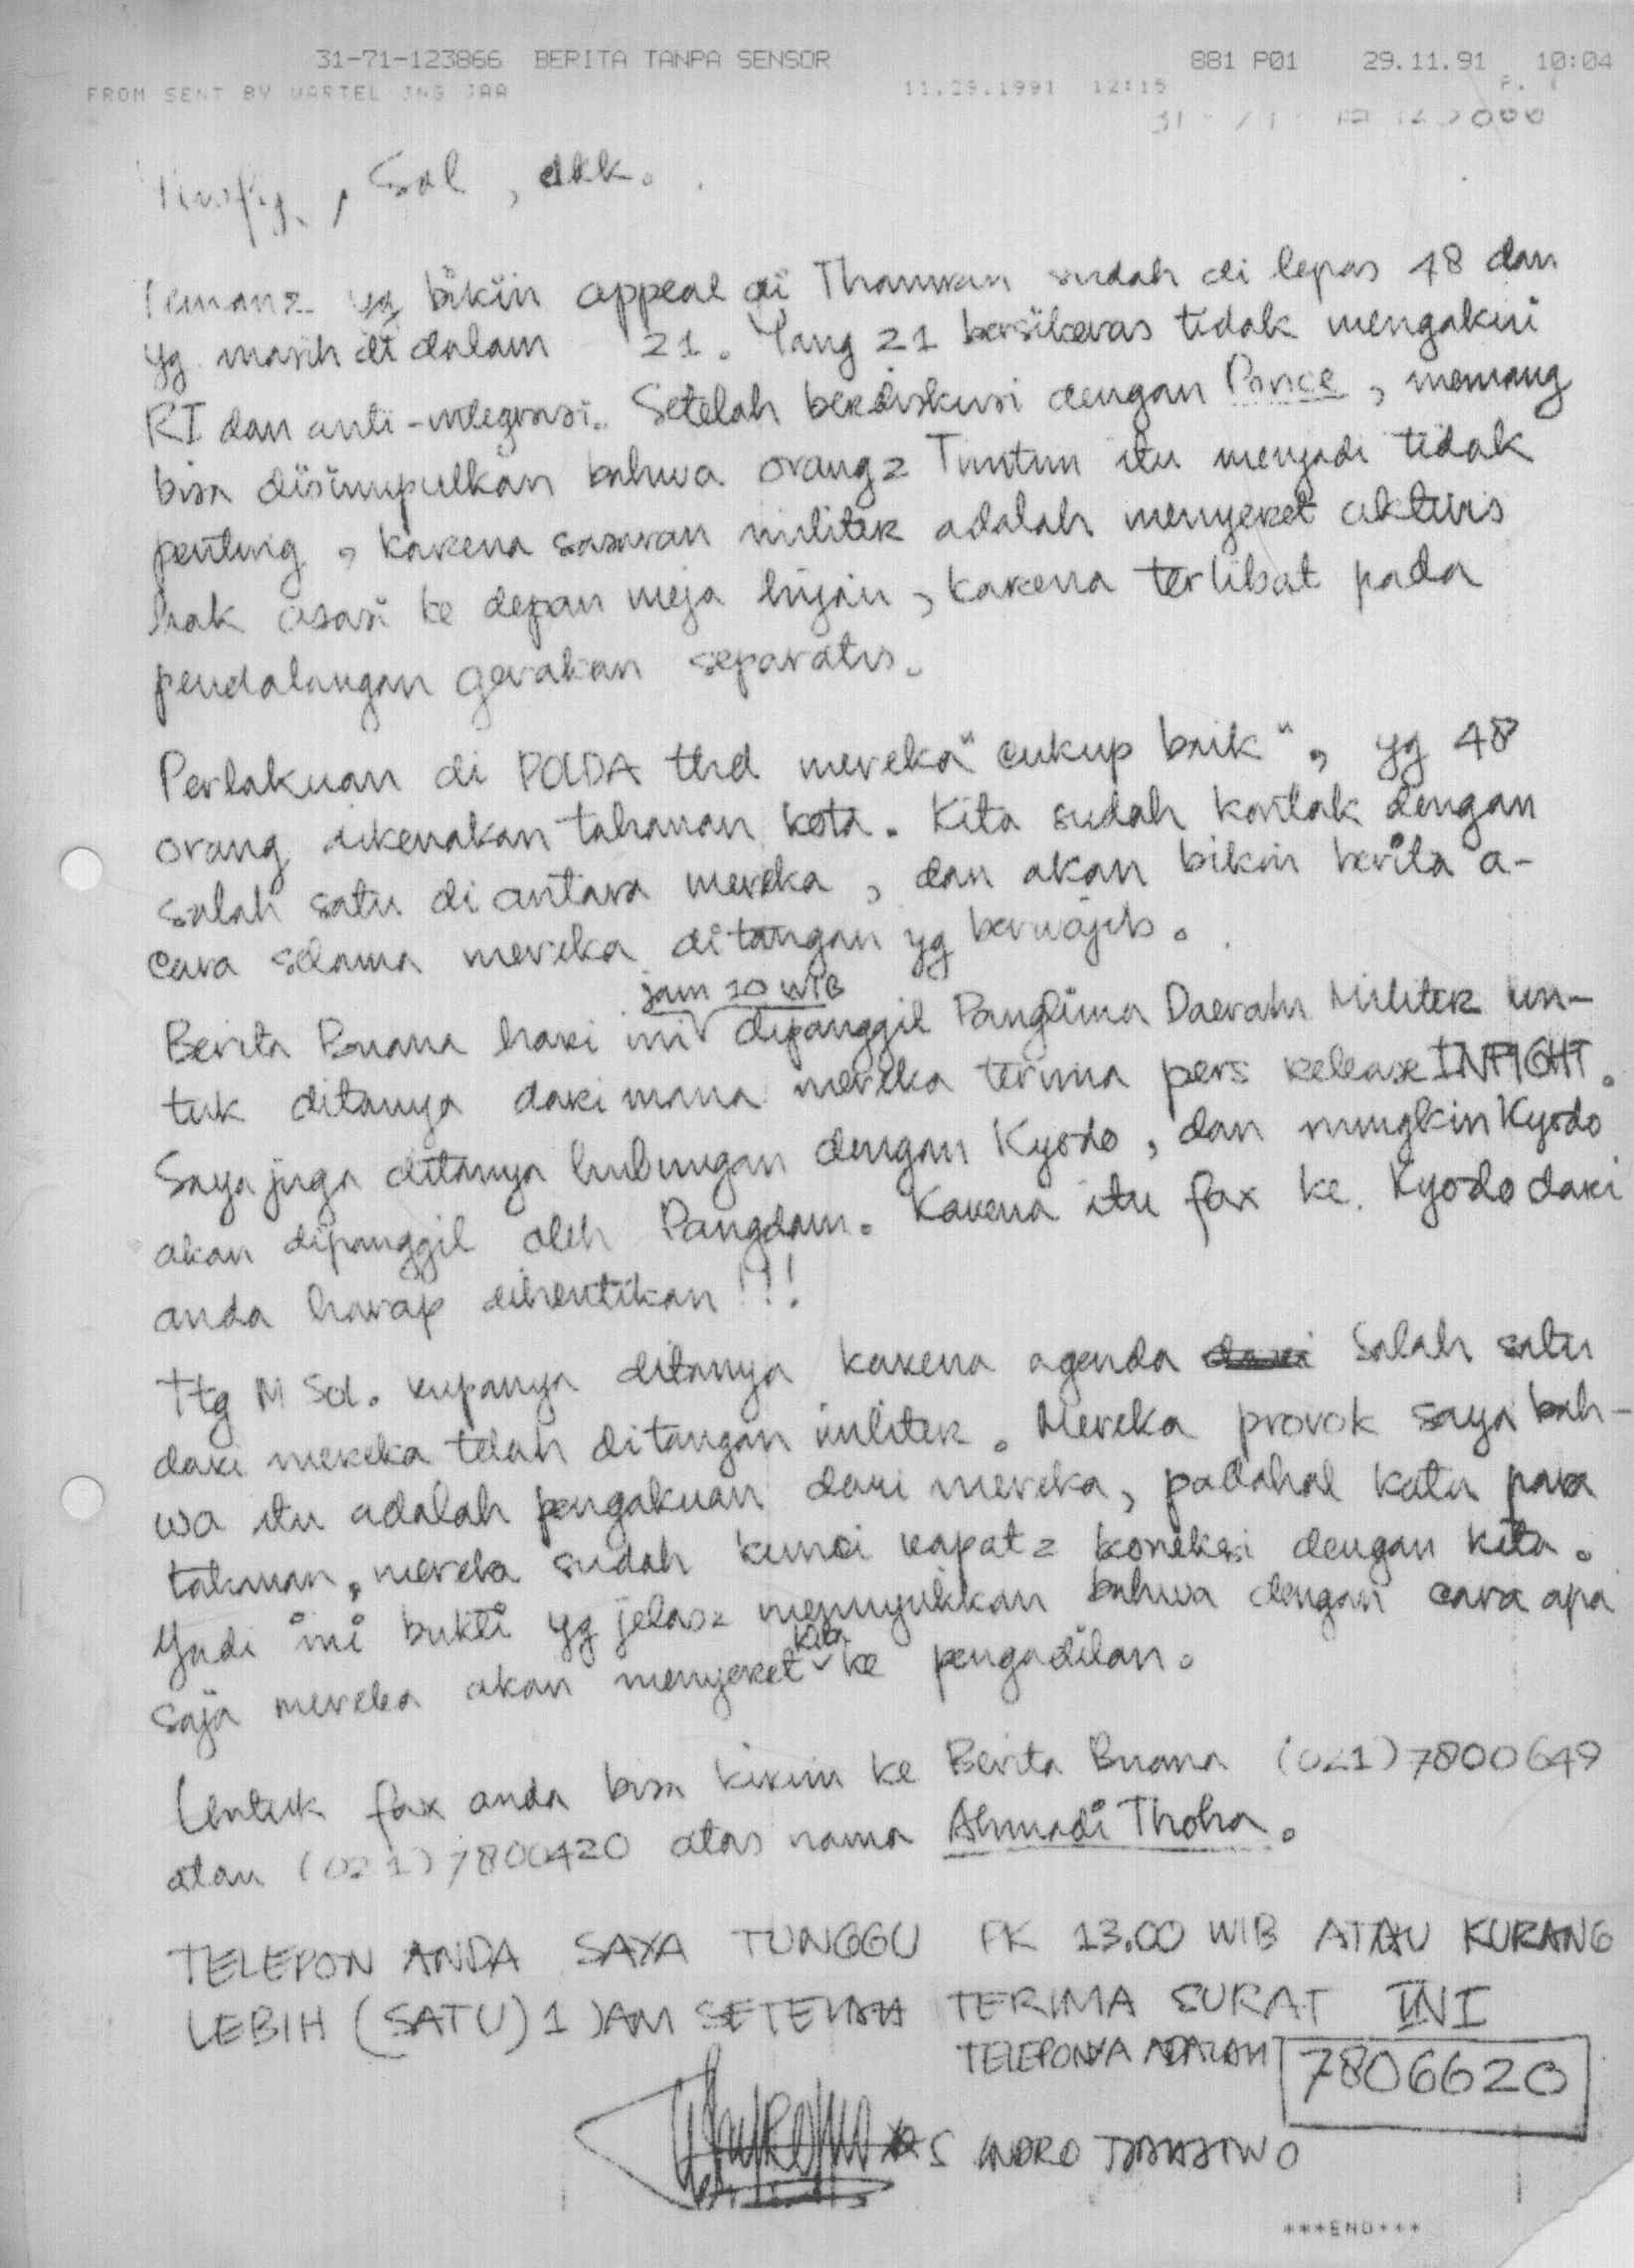 31-71-123866 BERITA TANPA SENSOR 881 P01 29.11.91 10:04
FROM SENT BY WARTEL JNG JAA 11.29.1991 12:15 P. 1
, Sol, dkk.
Teman2 yg bikin appeal di Thamran sudah di lepas 48 dan
yg masih di dalam 21. Yang 21 bersikeras tidak mengakui
RI dan anti-integrasi. Setelah berdiskusi dengan Ponce, memang
bisa disimpulkan bahwa orang2 Timtim itu menjadi tidak
penting, karena sasaran militer adalah menyeret aktivis
hak asasi ke depan meja hijau, karena terlibat pada
pendalangan gerakan separatis.
Perlakuan di POLDA thd mereka "cukup baik", yg 48
orang dikenakan tahanan kota. Kita sudah kontak dengan
salah satu di antara mereka, dan akan bikin berita a-
cara selama mereka ditangan yg berwajib.
jam 10 WIB
Berita Buana hari ini dipanggil Panglima Daerah Militer un-
tuk ditanya dari mana mereka terima pers release INFIGHT.
Saya juga ditanya hubungan dengan Kyodo, dan mungkin Kyodo
akan dipanggil oleh Pangdam. Karena itu fax ke Kyodo dari
anda harap dihentikan!!!
Ttg M Sol. rupanya ditanya karena agenda salah satu
dari mereka telah ditangan militer. Mereka provok saya bah-
wa itu adalah pengakuan dari mereka, padahal kata para
tahanan, mereka sudah kunci rapat2 koneksi dengan kita.
Yadi ini bukti yg jelas2 menunjukkan bahwa dengan cara apa
saja mereka akan menyeret kita ke pengadilan.
Untuk fax anda bisa kirim ke Berita Buana (021)7800649
atau (021)7800420 atas nama Ahmadi Thoha.
TELEPON ANDA SAYA TUNGGU PK 13.00 WIB ATAU KURANG
LEBIH (SATU) 1 JAM SETELAH TERIMA SURAT INI
TELEPONYA ADALAH 7806620
S INDRO TJAHJONO
***END***